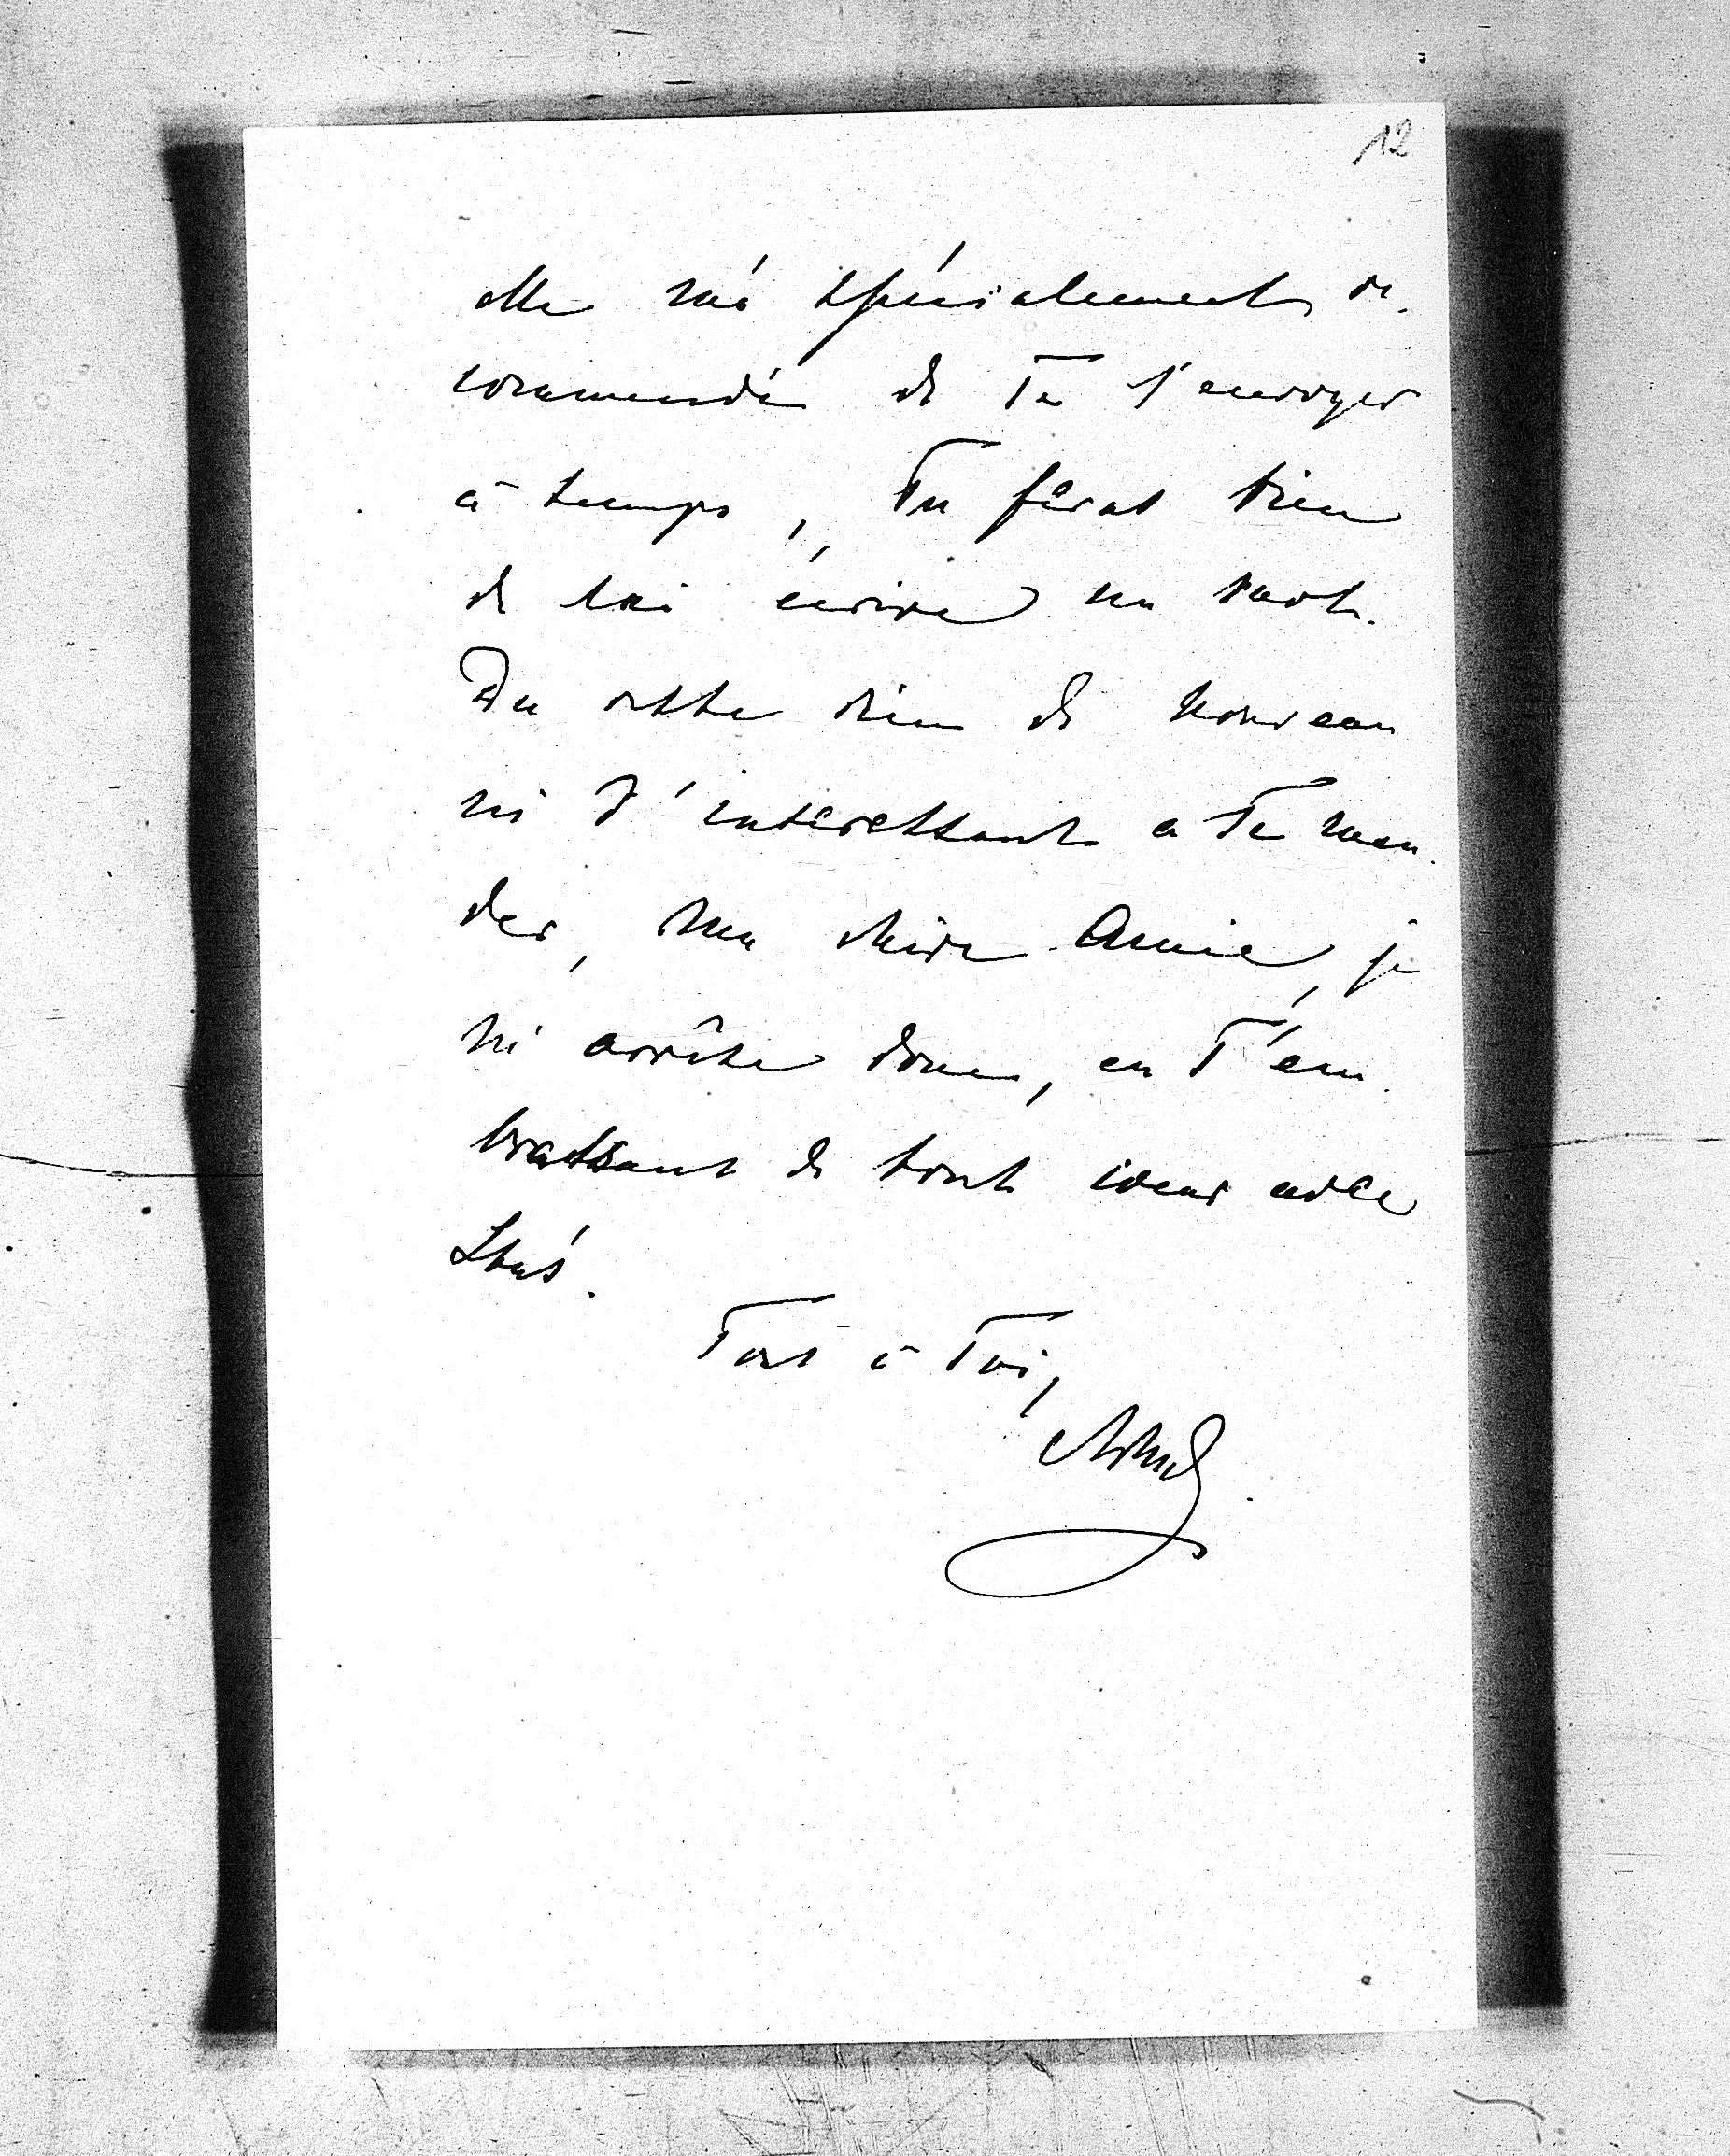 12
elle m'a spécialement re-
commendée de Te l'envoyer
à temps, Tu fèras bien
de lui écrire un mot.
Du reste rien de nouveau
ni d'intéressant a Te man-
der, ma chère Amie, je
m'arrête donc, en T'em-
brassant de tout coeur avec
Stas.
Tout à Toi,